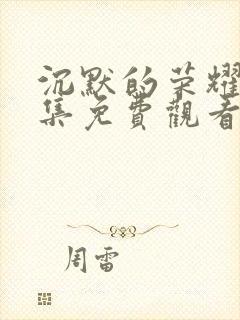 沉默的荣耀
集免費觀看
周雷